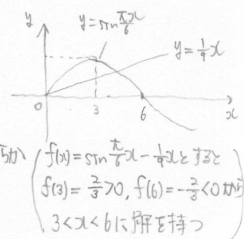 y
y=sin π/6 x
y=1/9 x
0
3
6
x
らか
f(x)=sin π/6 x - 1/9 x とすると
f(3)=2/3>0, f(6)=-2/3<0 から
3<x<6 に解を持つ